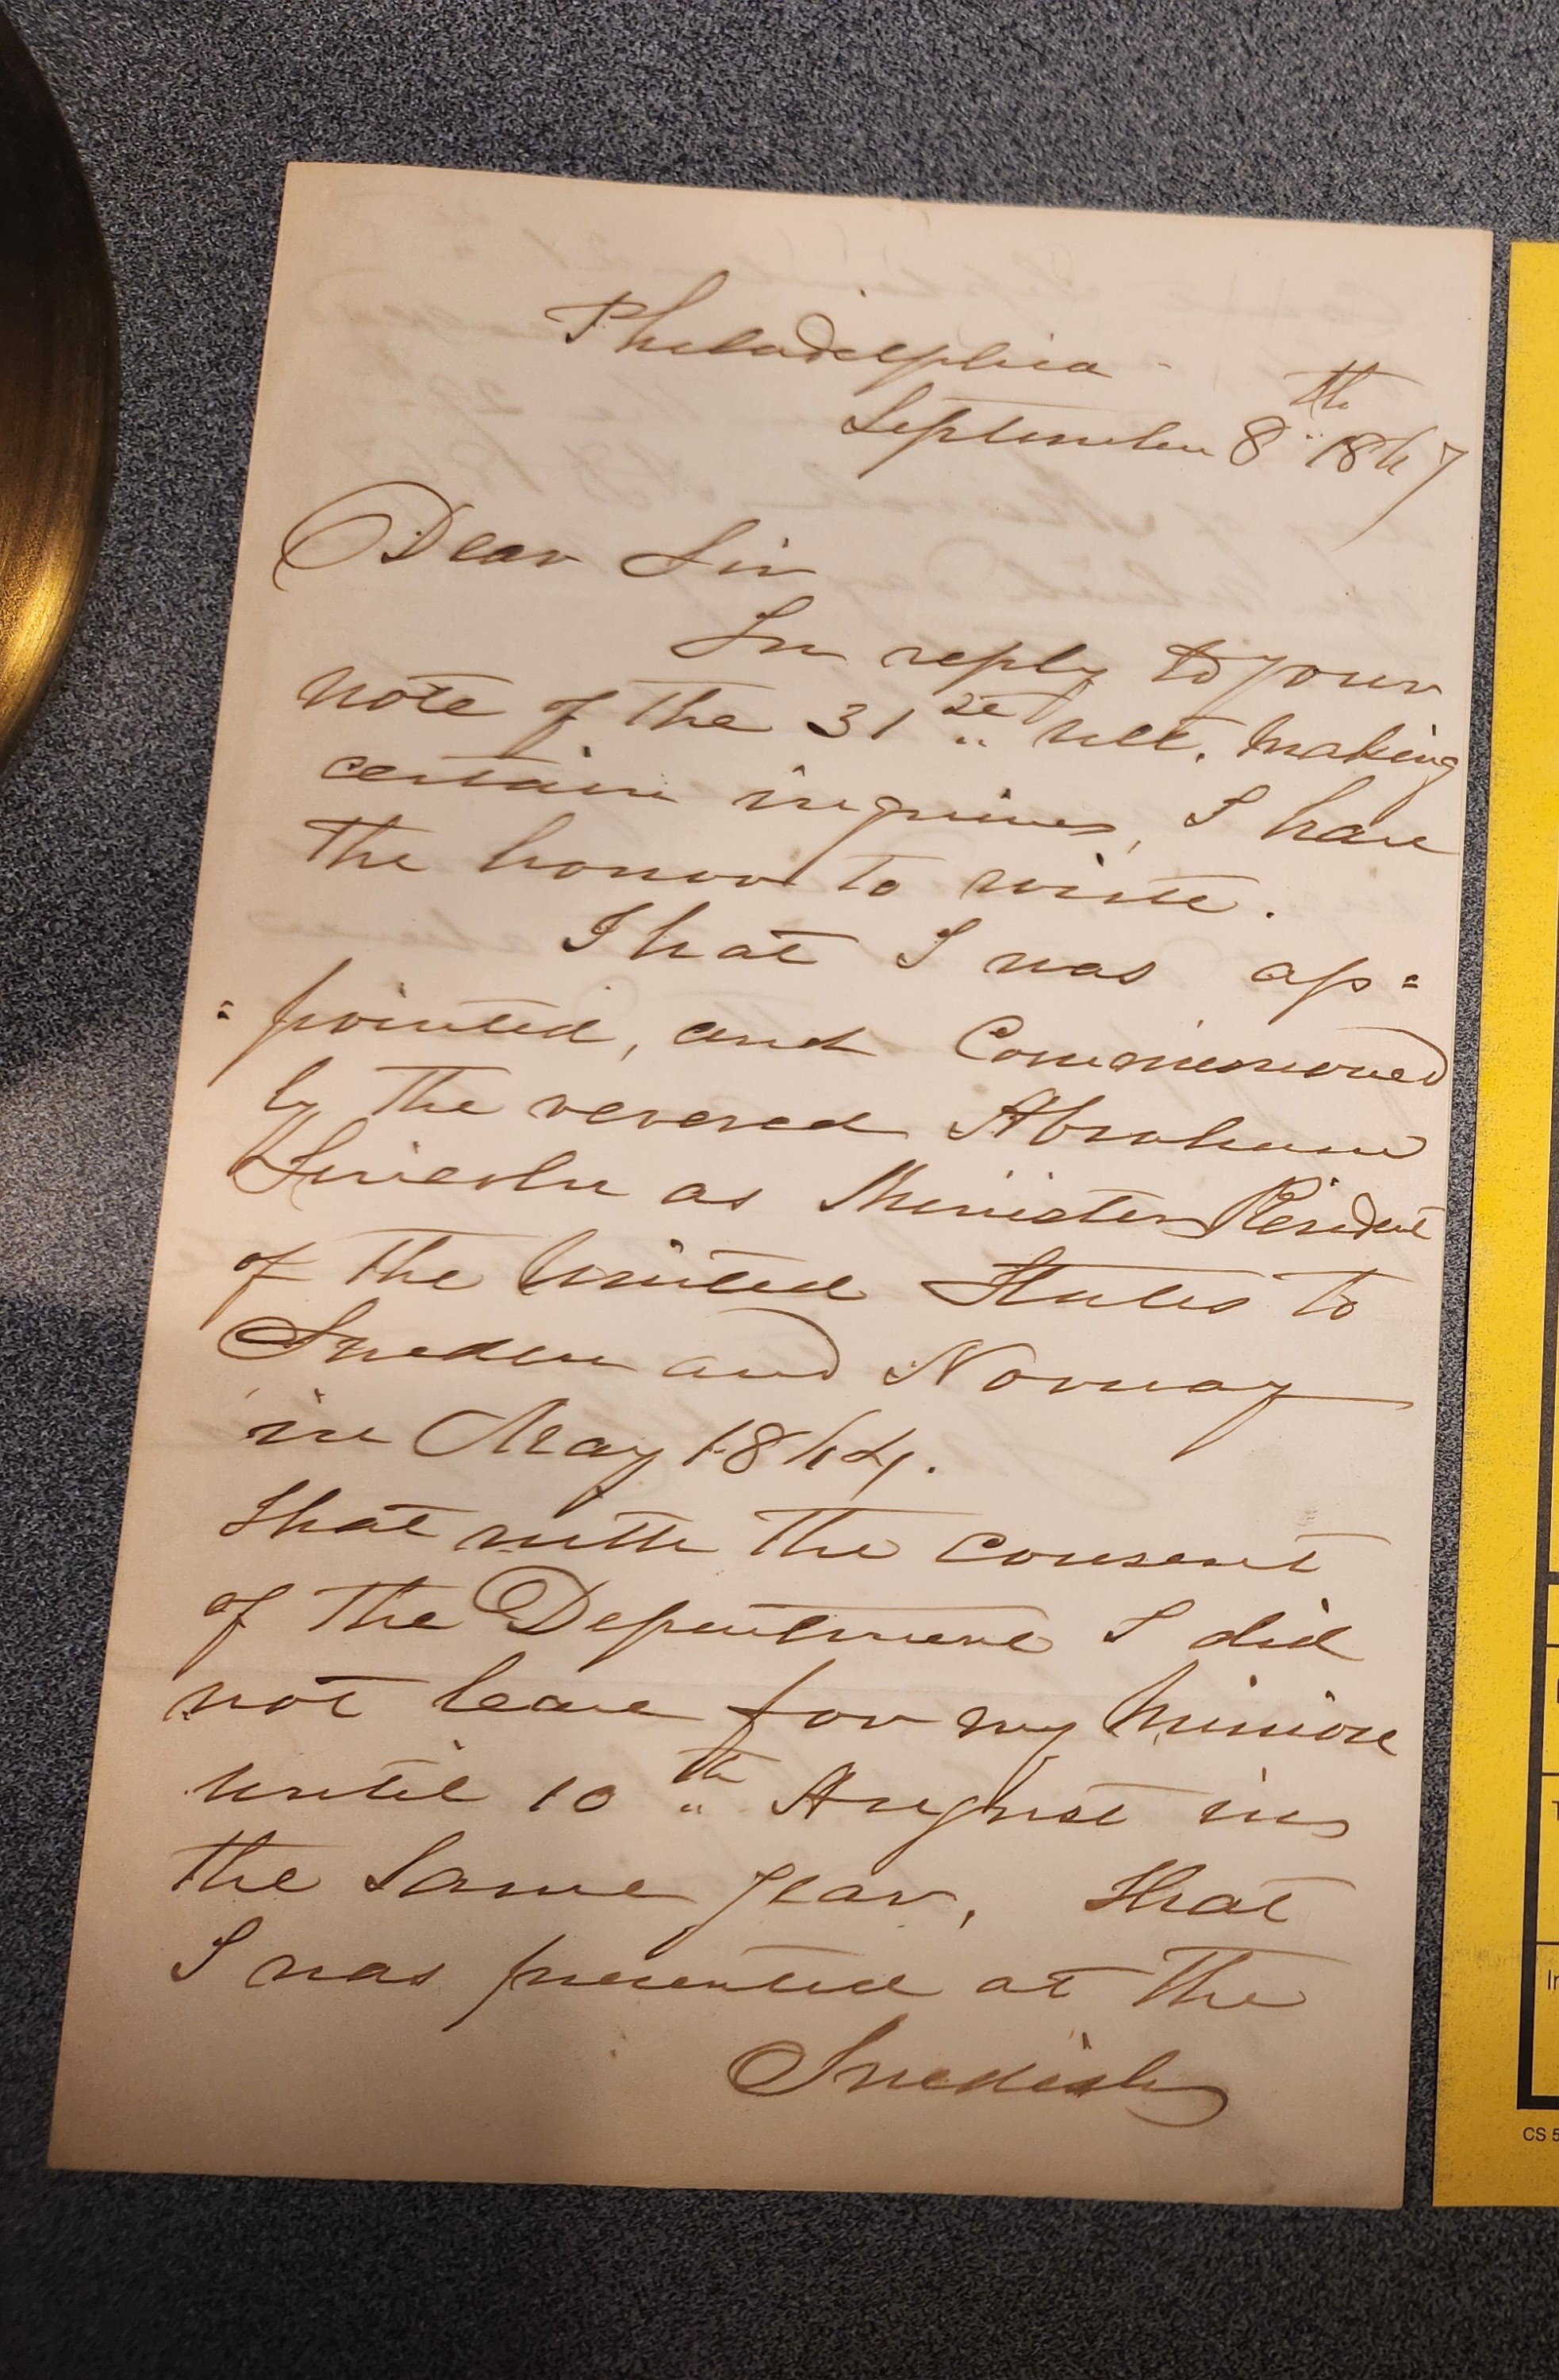 Philadelphia -
September 8th 1867
Dear Sir
In reply to your
note of the 31st ult. making
certain inquiries, I have
the honour to write.
That I was ap=
=pointed, and Commissioned
by the revered Abraham
Lincoln as Minister Resident
of the United States to
Sweden and Norway
in May 1864.
That with the consent
of the Department I did
not leave for my Mission
until 10th August in
the same year, That
I was presented at the
Swedish
CS 5